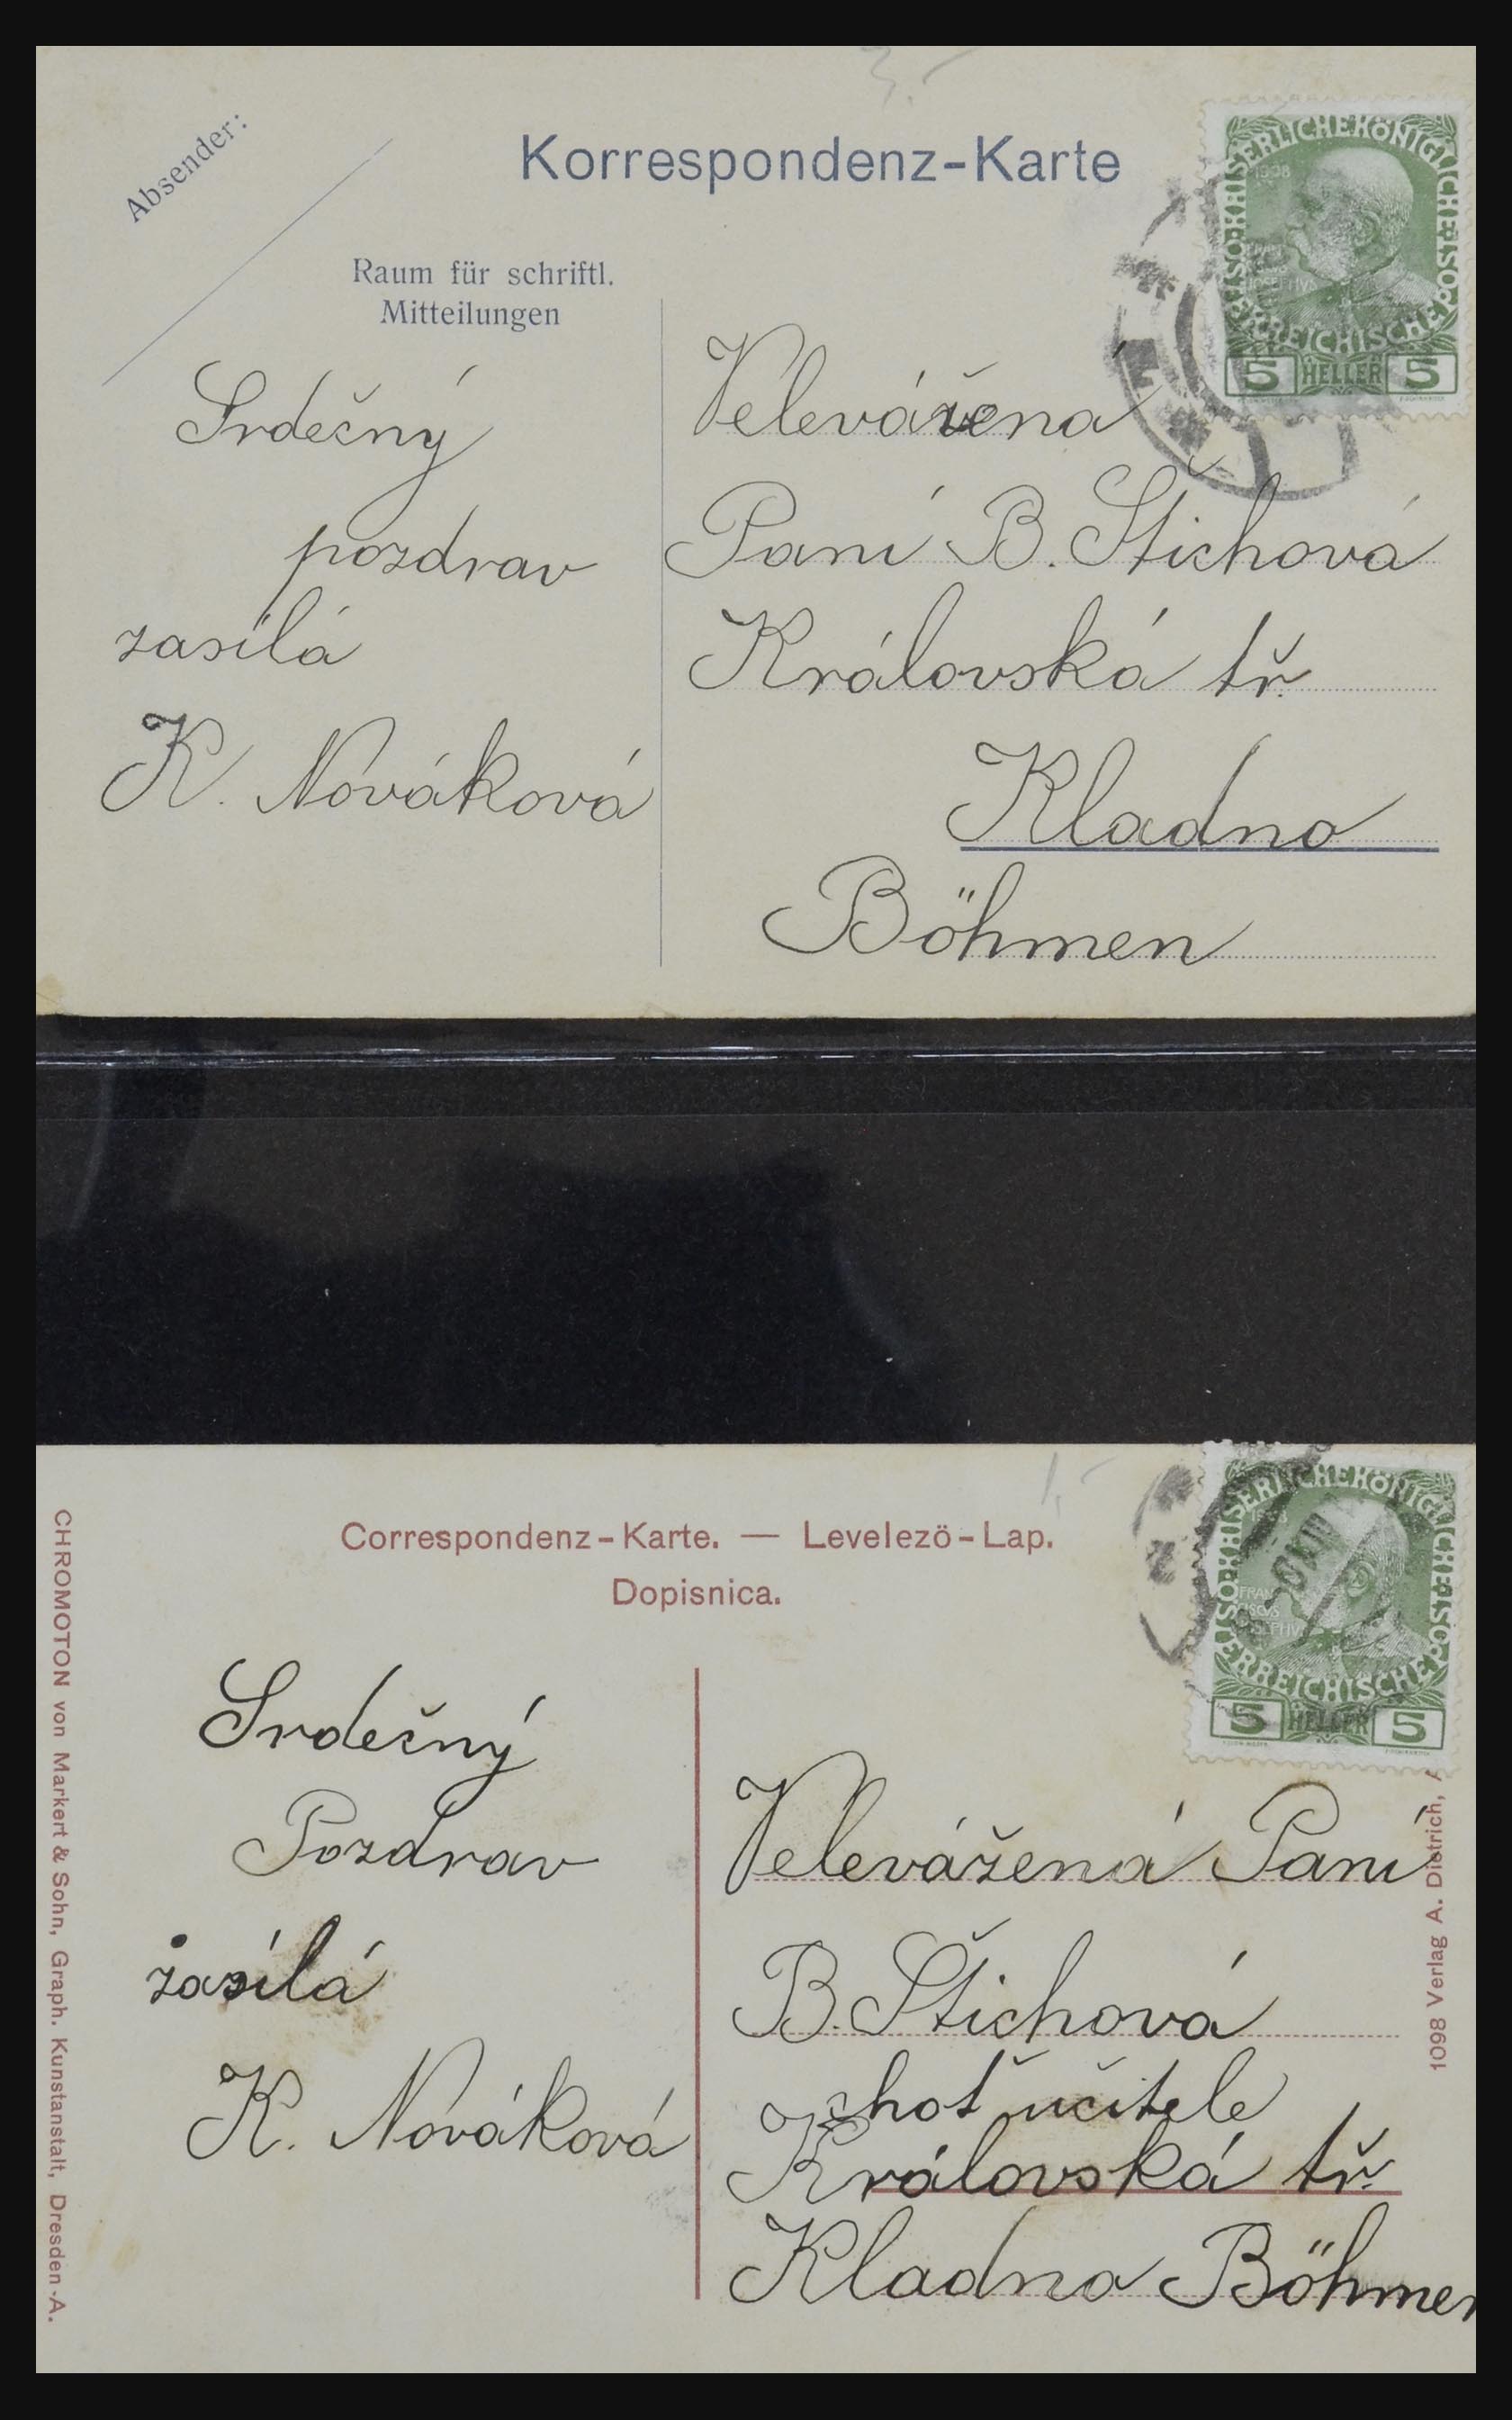 3.-
Absender:
Korrespondenz-Karte
Raum für schriftl.
Mitteilungen
KAISERLICHE KÖNIGLICHE ÖSTERREICHISCHE POST
1908
5 HELLER 5
Srdečný
pozdrav
zasílá
K. Nováková
Velevážena
Paní B. Štichová
Královská tř.
Kladno
Böhmen
1.-
Correspondenz-Karte. — Levelezö-Lap.
Dopisnica.
KAISERLICHE KÖNIGLICHE ÖSTERREICHISCHE POST
5 HELLER 5
CHROMOTON von Markert & Sohn, Graph. Kunstanstalt, Dresden-A.
Srdečný
Pozdrav
zasílá
K. Nováková
Velevážená Paní
B. Štichová
choť učitele
Královská tř.
Kladno Böhmen
1098 Verlag A. Dietrich,